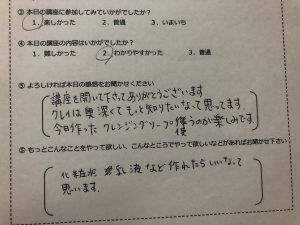 ③ 本日の講座に参加してみていかがでしたか?
1. 楽しかった 2. 普通 3. いまいち
④ 本日の講座の内容はいかがでしたか?
1. 難しかった 2. わかりやすかった 3. 普通
⑤ よろしければ本日の感想をお聞かせください
講座を開いて下さってありがとうございます
クレイは奥深くてもっと知りたいなって思ってます
今日作ったクレンジングソープ使うのが楽しみです。
⑥ もっとこんなことをやって欲しい、こんなところでやって欲しいなどがあればお聞かせ下さい
化粧水 乳液など作れたらいいなって
思います.